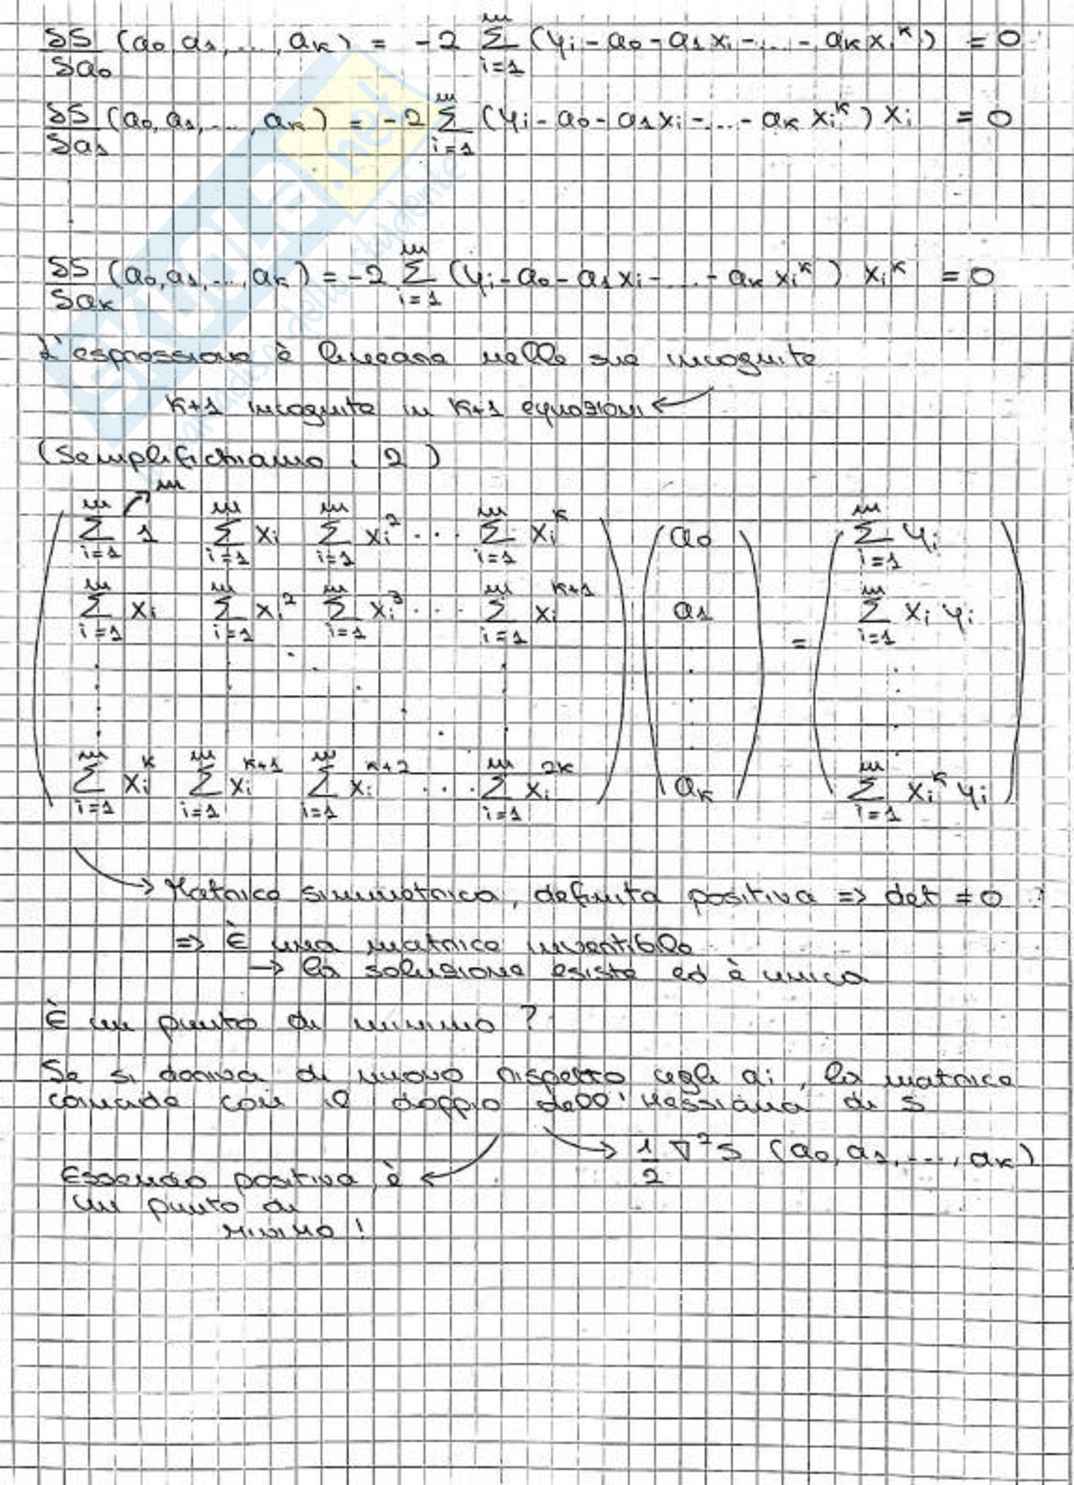 δS/δa₀ (a₀, a₁, ..., aₖ) = -2 Σᵢ₌₁ᵐ (yᵢ - a₀ - a₁xᵢ - ... - aₖxᵢᵏ) = 0
δS/δa₁ (a₀, a₁, ..., aₖ) = -2 Σᵢ₌₁ᵐ (yᵢ - a₀ - a₁xᵢ - ... - aₖxᵢᵏ) xᵢ = 0
δS/δaₖ (a₀, a₁, ..., aₖ) = -2 Σᵢ₌₁ᵐ (yᵢ - a₀ - a₁xᵢ - ... - aₖxᵢᵏ) xᵢᵏ = 0
L'espressione è lineare nelle sue incognite
k+1 incognite in k+1 equazioni ←
(Semplifichiamo i 2)
→ m
( Σᵢ₌₁ᵐ 1 Σᵢ₌₁ᵐ xᵢ Σᵢ₌₁ᵐ xᵢ² ... Σᵢ₌₁ᵐ xᵢᵏ ) ( a₀ ) ( Σᵢ₌₁ᵐ yᵢ )
( Σᵢ₌₁ᵐ xᵢ Σᵢ₌₁ᵐ xᵢ² Σᵢ₌₁ᵐ xᵢ³ ... Σᵢ₌₁ᵐ xᵢᵏ⁺¹ ) ( a₁ ) = ( Σᵢ₌₁ᵐ xᵢ yᵢ )
( Σᵢ₌₁ᵐ xᵢᵏ Σᵢ₌₁ᵐ xᵢᵏ⁺¹ Σᵢ₌₁ᵐ xᵢᵏ⁺² ... Σᵢ₌₁ᵐ xᵢ²ᵏ ) ( aₖ ) ( Σᵢ₌₁ᵐ xᵢᵏ yᵢ )
→ Matrice simmetrica, definita positiva => det ≠ 0 ?
=> È una matrice invertibile
→ la soluzione esiste ed è unica
È un punto di minimo ?
Se si deriva di nuovo rispetto agli ai, la matrice
coincide con il doppio dell'Hessiana di S
→ 1/2 ∇²S (a₀, a₁, ..., aₖ)
Essendo positiva, è ←
un punto di
minimo !
SKUOLA.net